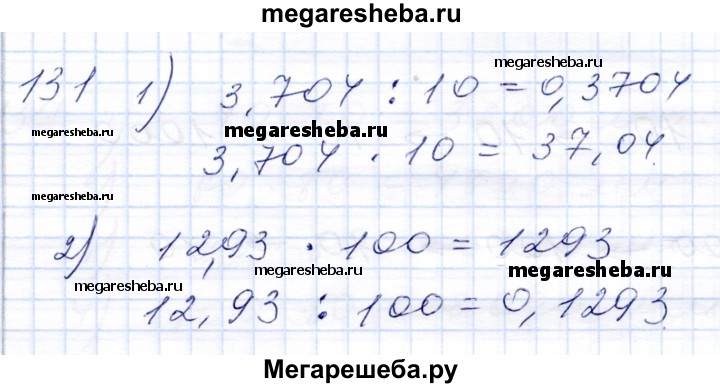 megaresheba.ru
131 1) 3,704 : 10 = 0,3704
megaresheba.ru
megaresheba.ru
megaresheba.ru
3,704 · 10 = 37,04
megaresheba.ru
2) 12,93 · 100 = 1293
megaresheba.ru
megaresheba.ru
megaresheba.ru
12,93 : 100 = 0,1293
Мегарешеба.ру